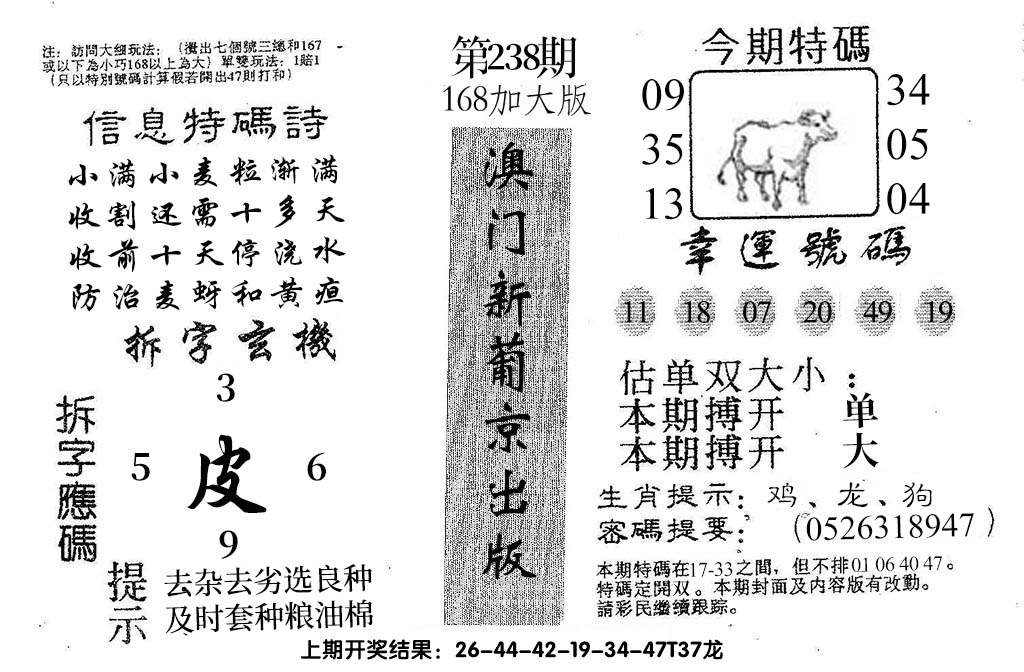 注：訪問大细玩法：（攪出七個號三總和167
或以下為小巧168以上為大）單雙玩法：1賠1
（只以特別號碼計算假若開出47則打和）
信息特碼詩
小满小麦粒渐满
收割还需十多天
收前十天停浇水
防治麦蚜和黄疸
拆字玄機
3
5 皮 6
9
拆字應碼
提示
去杂去劣选良种
及时套种粮油棉
第238期
168加大版
澳门新葡京出版
今期特碼
09 34
35 05
13 04
幸運號碼
11 18 07 20 49 19
估单双大小：
本期搏开 单
本期搏开 大
生肖提示：鸡、龙、狗
密碼提要：（0526318947）
本期特碼在17-33之間，但不排01 06 40 47。
特碼定開双。本期封面及内容版有改動。
請彩民繼續跟踪。
上期开奖结果：26-44-42-19-34-47T37龙